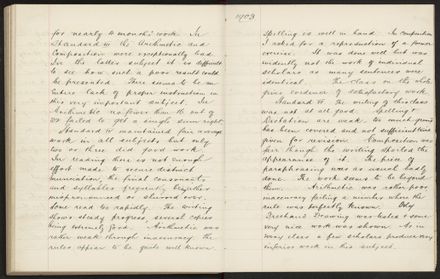 for nearly 10 months' work. In
Standard III the Arithmetic and
Composition were exceptionally bad.
In the latter subject it is difficult
to see how such a poor result could
be presented. There seems to be an
entire lack of proper instruction in
this very important subject. In
Arithmetic no fewer than 15 out of
20 failed to get a single sum right.
Standard IV maintained fair average
work in all subjects but only
two or three did good work.
In reading there is not enough
effort made to secure distinct
enunciation, the final consonants
and syllables frequently being either
mispronounced or slurred over.
Some read too rapidly. The writing
shows steady progress, several copies
being entirely good. Arithmetic was
rather weak through inaccuracy the
rules appear to be quite well known.
1903
Spelling is well in hand. In Composition
I asked for a reproduction of a former
exercise. It was done well but was
evidently not the work of individual
scholars as many sentences were
identical. The class on the whole
gives evidence of satisfactory work.
Standard V. The writing of this class
was not at all good. Spelling &
Dictation are weak too much ground
has been covered and not sufficient time
given for revision. Composition was
fair though the writing spoiled the
appearance of it. The piece of
paraphrasing was as usual badly
done. The work seems to be beyond
them. Arithmetic was rather poor
inaccuracy failing a number where the
rule was perfectly known. Only
Freehand Drawing was tested & some
very nice work was shown. As in
many class a few scholars produce very
inferior work in this subject.